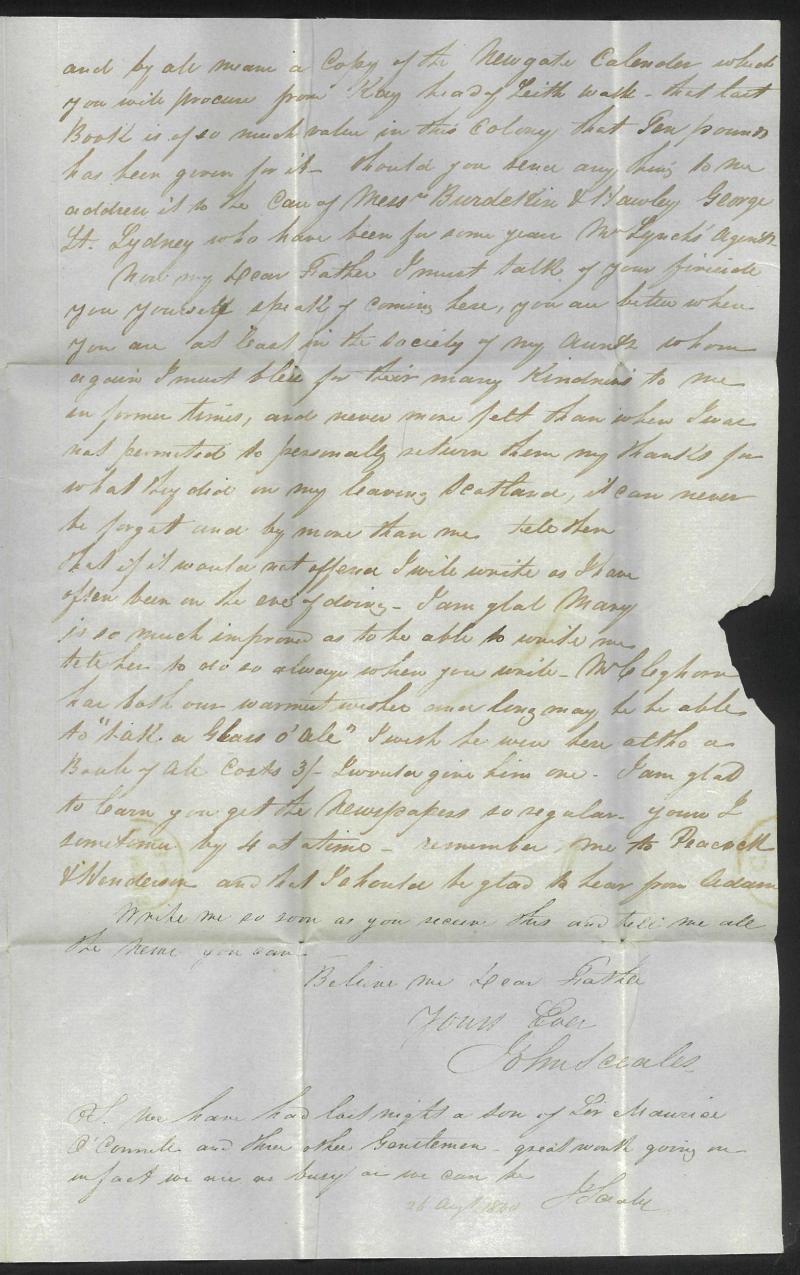 and by all means a Copy of the Newgate Calender which
you will procure from Kay head of Leith walk - that last
Book is of so much value in this Colony that Ten pounds
has been given for it - Should you send any thing to me
address it to the Care of Messrs Burdekin & Hawley George
St. Sydney who have been for some years Mr Lynch's Agents
Now my Dear Father I must talk of your fireside
you yourself speak of coming here, you are better where
you are at least in the society of my Aunts whom
again I must bless for their many Kindness to me
in former times, and never more felt than when I was
not permitted to personally return them my thanks for
what they did on my leaving Scotland, it can never
be forgot and by more than me tell them
that if it would not offend I will write as I have
often been on the eve of doing - I am glad Mary
is so much improved as to be able to write me
tell her to do so always when you write - Mr Cleghorn
has both our warmest wishes and long may he be able
to "tak a Glass o' Ale" I wish he were here altho a
Bottle of Ale Costs 3/- I would give him one - I am glad
to learn you get the Newspapers so regular - yours I
sometimes by 4 at a time - remember me to Peacock
& Henderson and that I should be glad to hear from Adam
Write me so soon as you receive this and tell me all
the news you can -
Believe me Dear Father
Yours Ever
John Sceales
PS. We have had last night a son of Sir Maurice
O'Connell and three other Gentlemen - great work going on
in fact we are as busy as we can be
J Sceales
26 Augt 1840